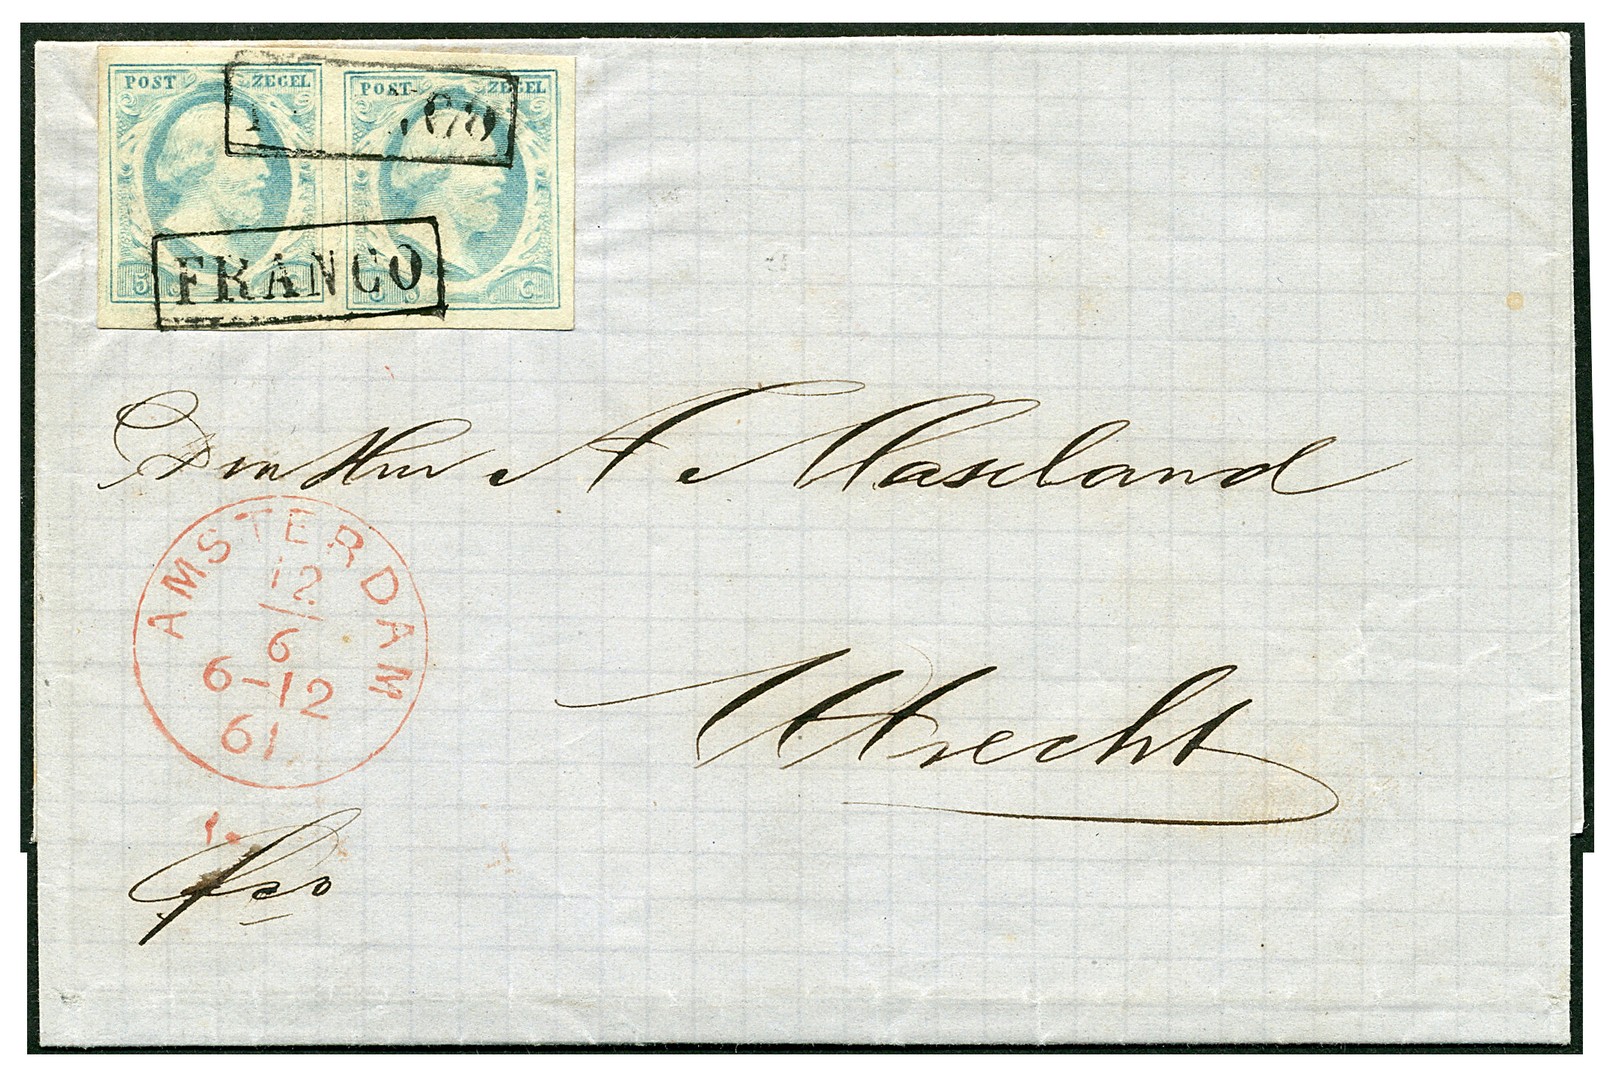 POST ZEGEL POST ZEGEL
FRANCO
5 C 5 C
Den Heer A Maseland
AMSTERDAM
12
6
6-12
61
Utrecht
fco